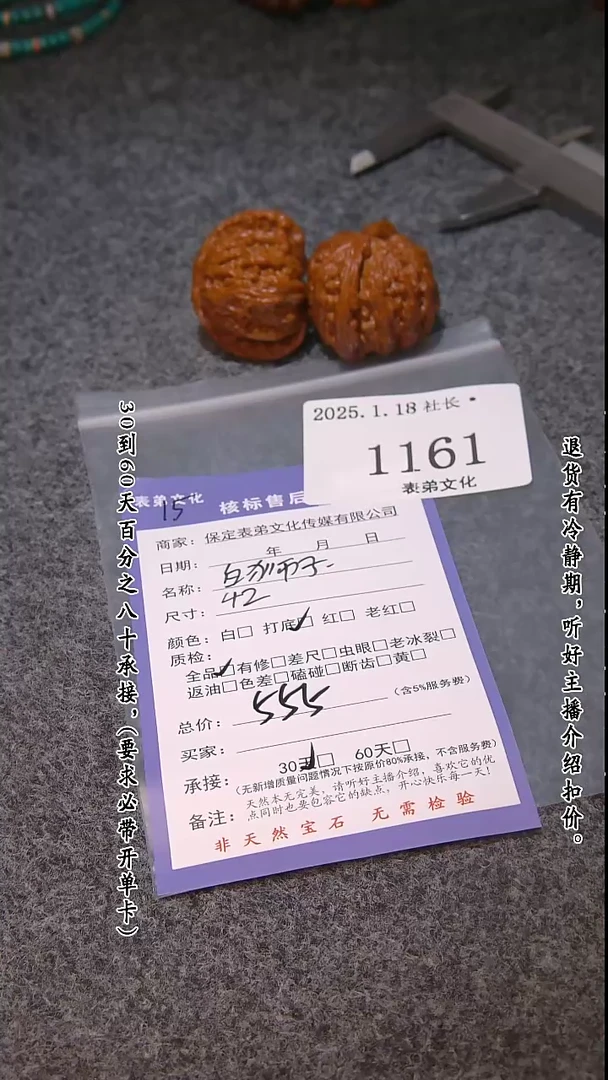 2025.1.18 社长
1161
表弟文化
表弟文化
15
核标售后
商家：保定表弟文化传媒有限公司
日期： 年 月 日
名称：白狮子
尺寸：42
颜色：白□ 打底□ 红□ 老红□
质检：
全品□有修□差尺□虫眼□老冰裂□
返油□色差□磕碰□断齿□黄□
总价：555（含5%服务费）
买家：
承接：30天□ 60天□
（无新增质量问题情况下按原价80%承接，不含服务费）
备注：天然本无完美，请听好主播介绍，喜欢它的优
点同时也要包容它的缺点，开心快乐每一天！
非天然宝石 无需检验
30到60天百分之八十承接，（要求必带开单卡）
退货有冷静期，听好主播介绍扣价。